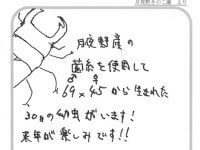 月夜野きのこ園 より
月夜野産の
菌糸を使用して
♂ ♀
69×45から生まれた
30gの幼虫がいます!
来年が楽しみです!!